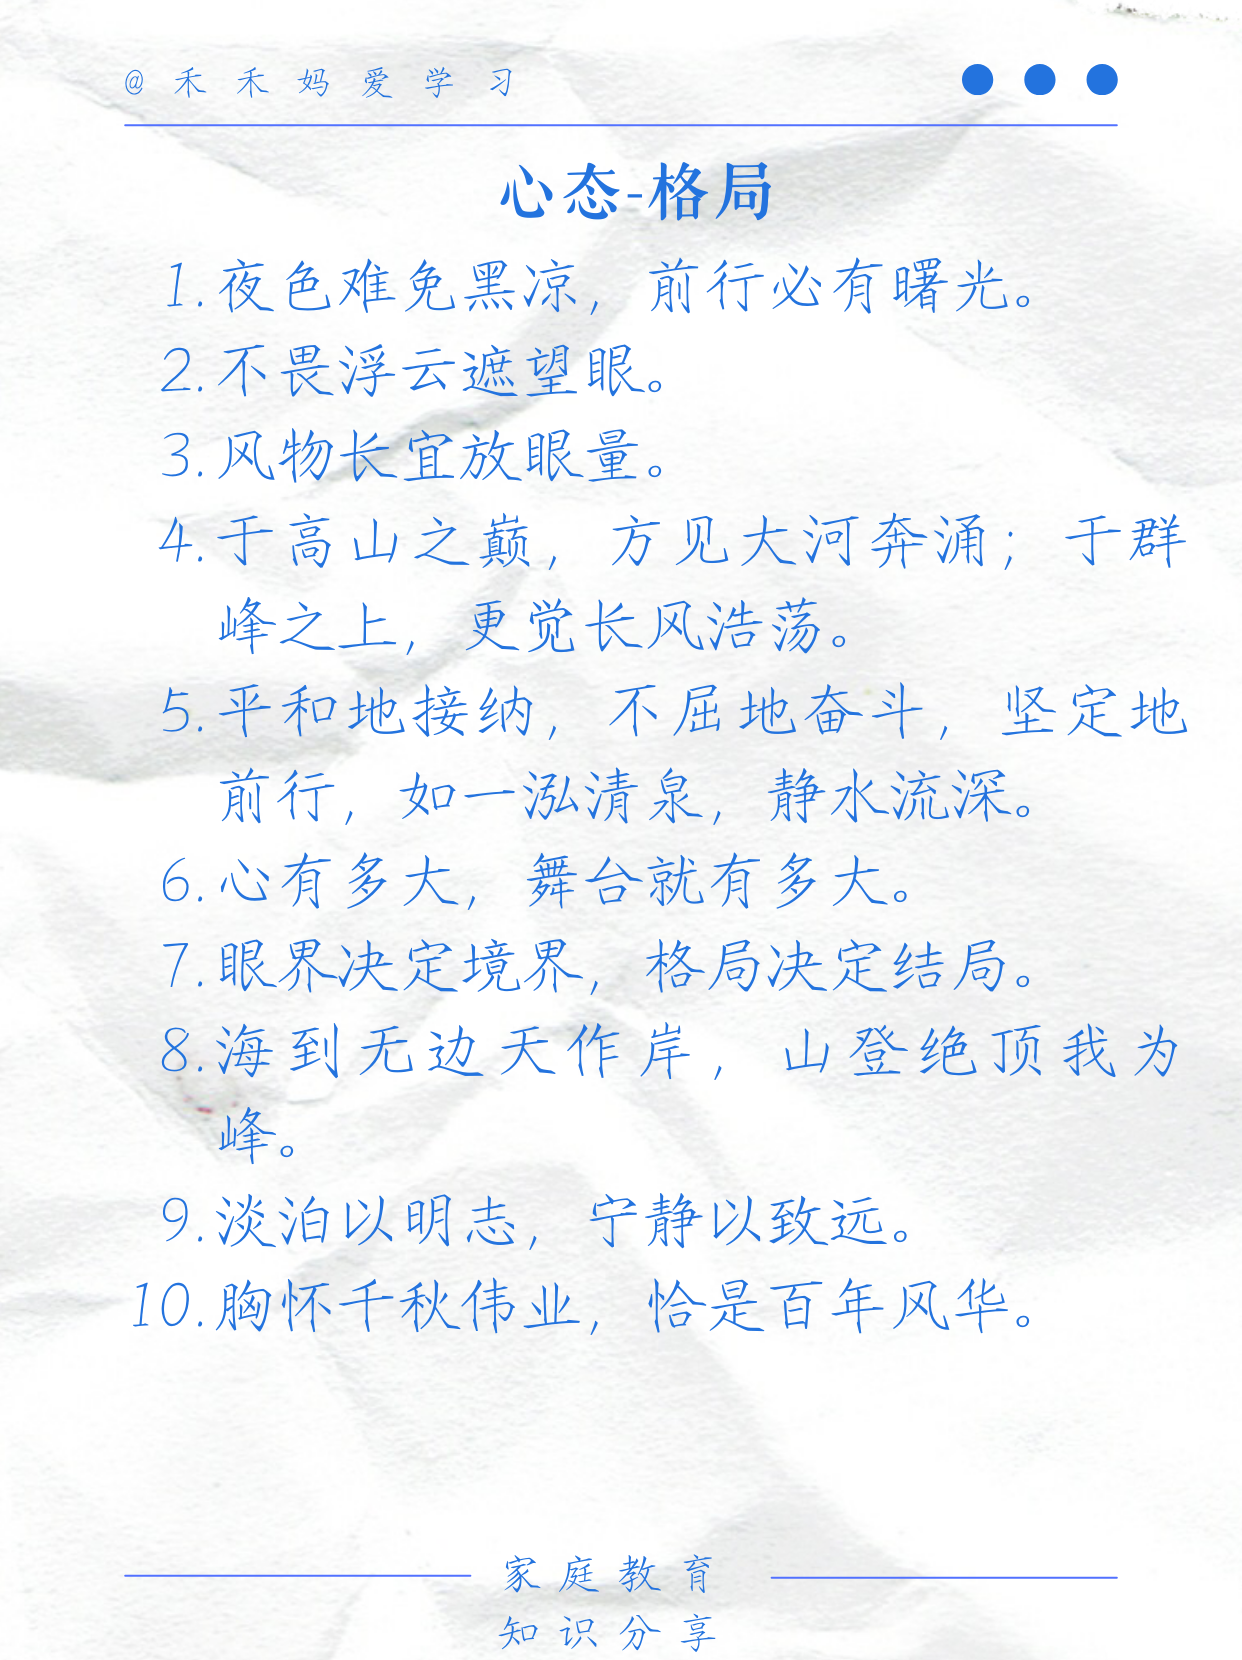 @禾禾妈爱学习
心态-格局
1.夜色难免黑凉，前行必有曙光。
2.不畏浮云遮望眼。
3.风物长宜放眼量。
4.于高山之巅，方见大河奔涌；于群
峰之上，更觉长风浩荡。
5.平和地接纳，不屈地奋斗，坚定地
前行，如一泓清泉，静水流深。
6.心有多大，舞台就有多大。
7.眼界决定境界，格局决定结局。
8.海到无边天作岸，山登绝顶我为
峰。
9.淡泊以明志，宁静以致远。
10.胸怀千秋伟业，恰是百年风华。
家庭教育
知识分享